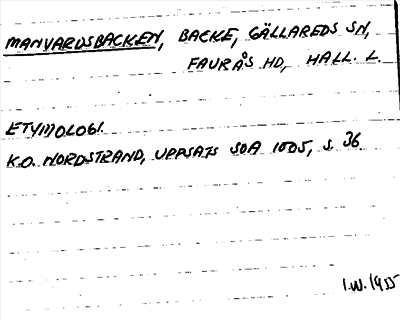 MANVARDSBACKEN, BACKE, GÄLLAREDS SN,
FAURÅS HD, HALL. L.
ETYMOLOGI.
K.O. NORDSTRAND, UPPSATS SOA 1005, S. 36
I.W. 1955